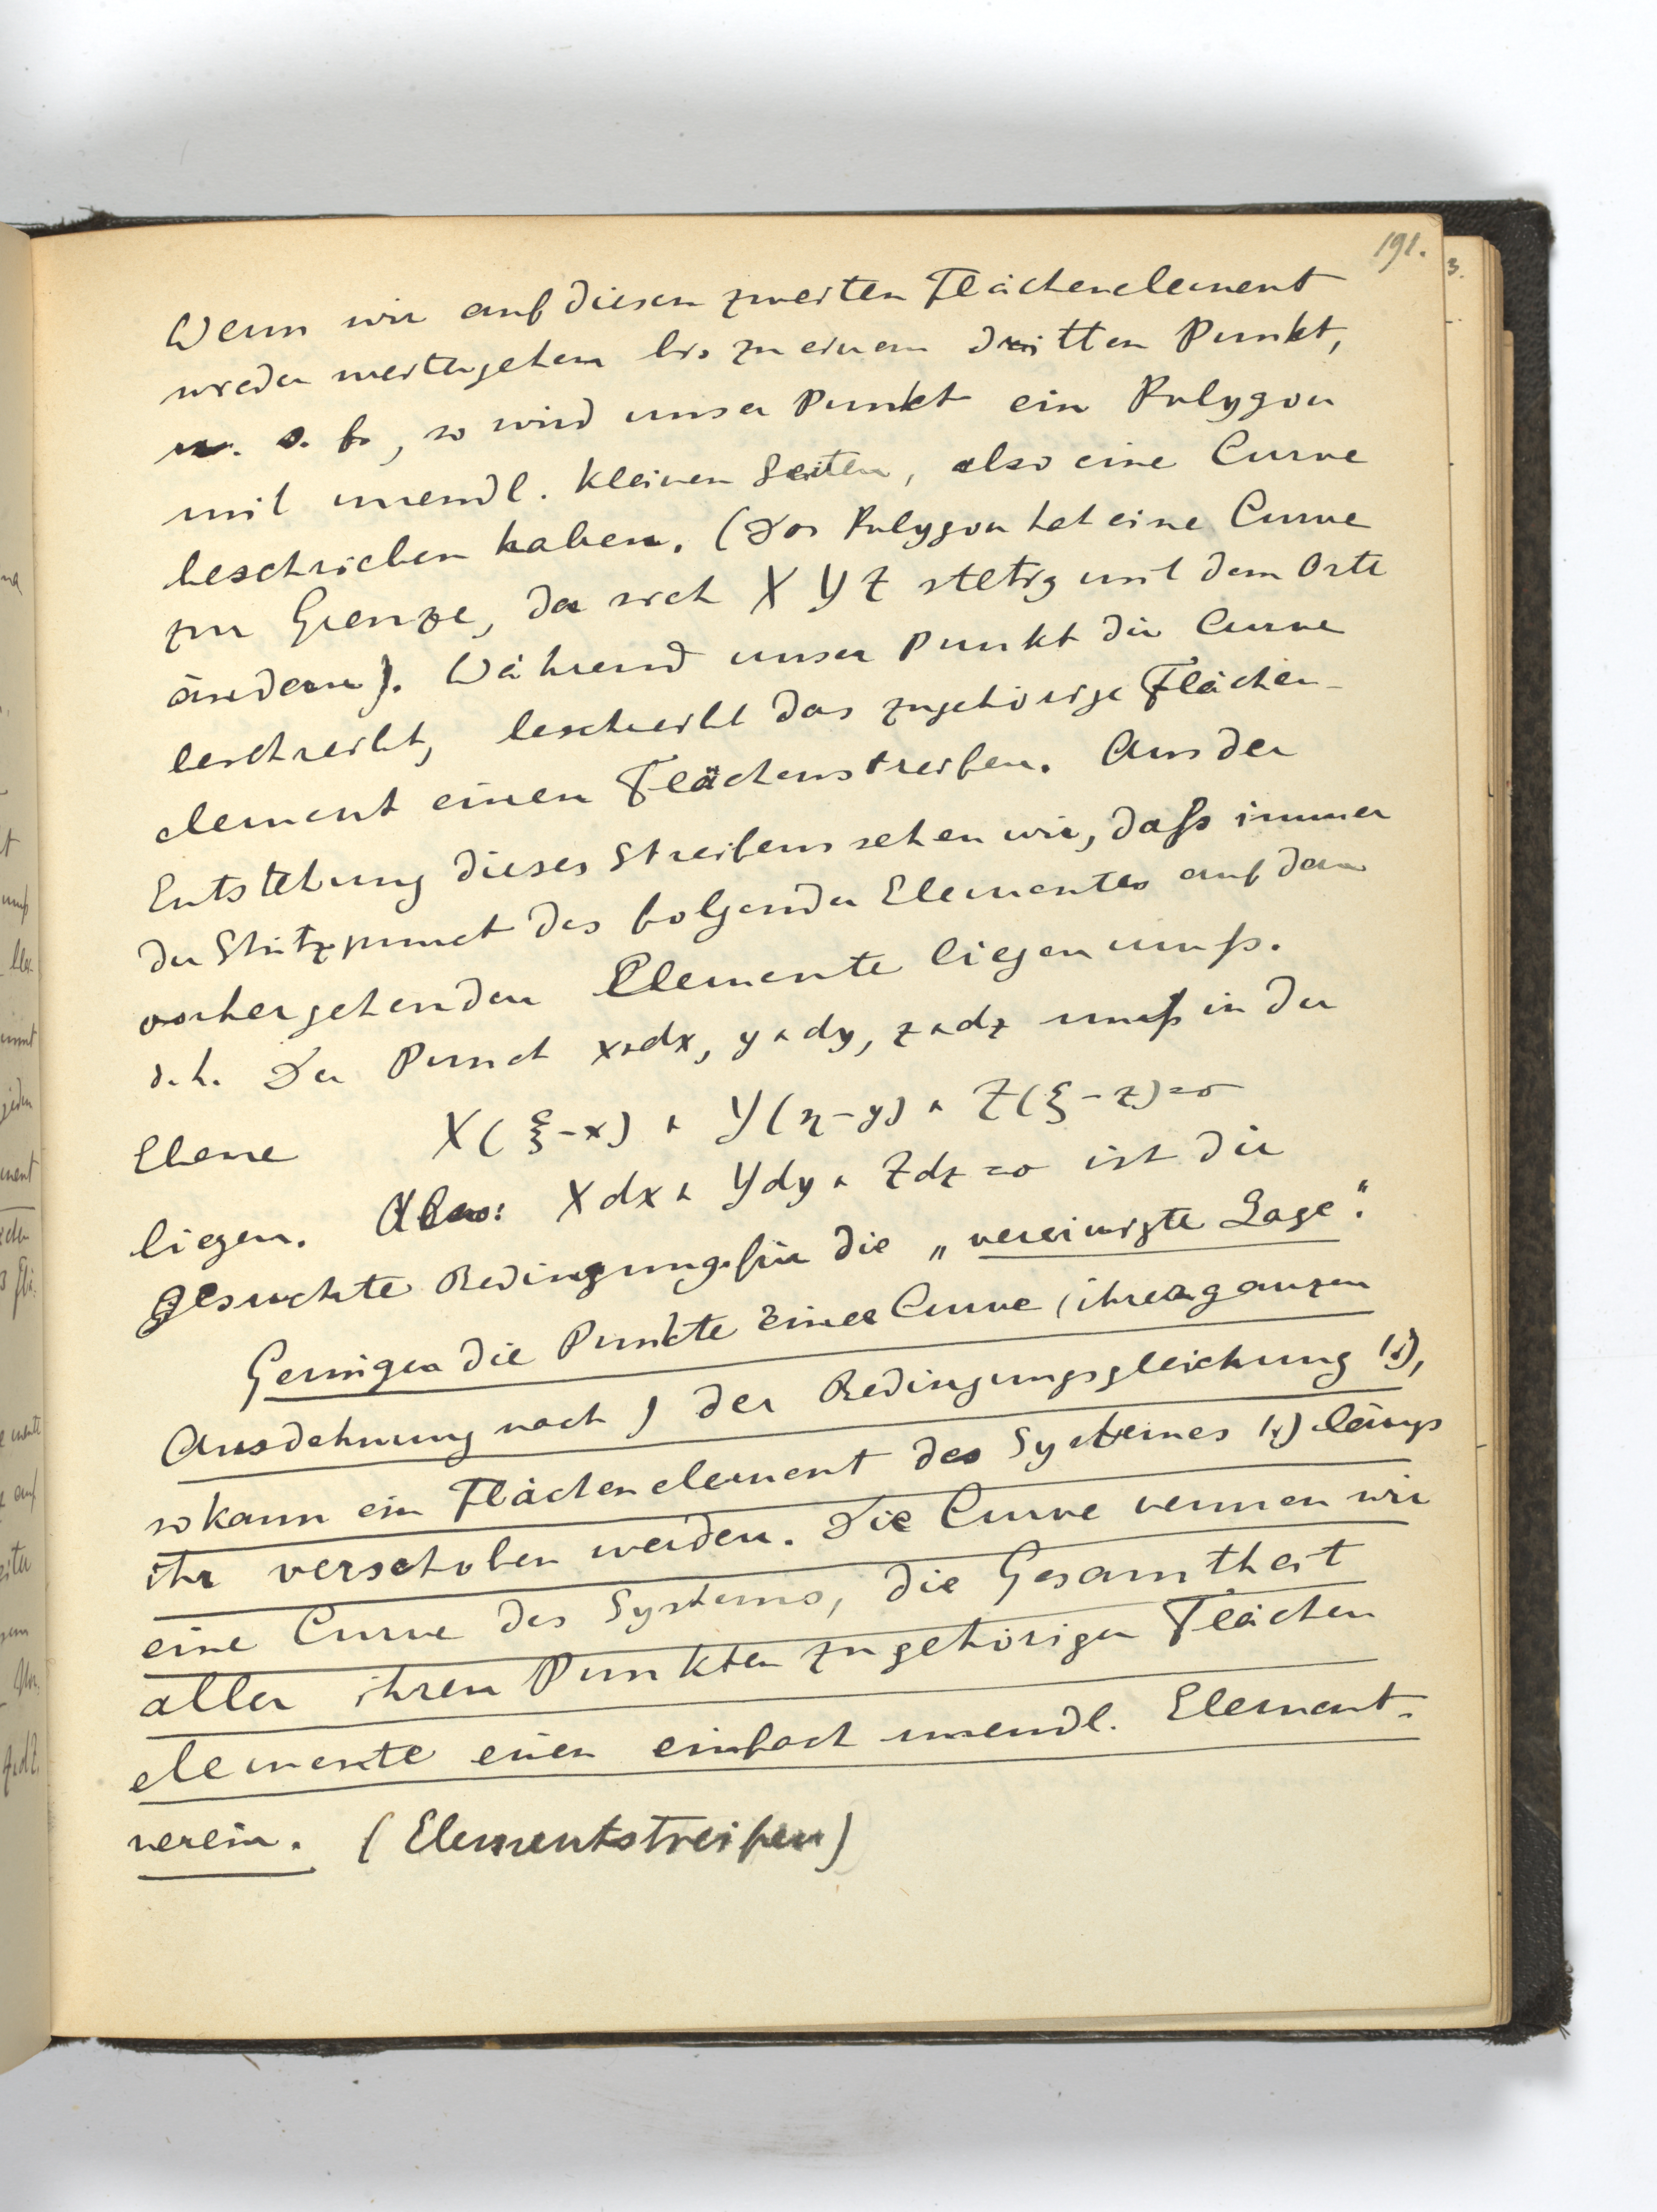 191.
Wenn wir auf diesem zweiten Flächenelement
wieder weitergehen bis zu einem dritten Punkt,
u. s. f., so wird unser Punkt ein Polygon
mit unendl. kleinen Seiten, also eine Curve
beschrieben haben. (Das Polygon hat eine Curve
zur Grenze, da sich X Y Z stetig mit dem Orte
ändern). Während unser Punkt die Curve
beschreibt, beschreibt das zugehörige Flächen-
element einen Flächenstreifen. Aus der
Entstehung dieses Streifens sehen wir, daß immer
der Stützpunct des folgenden Elementes auf dem
vorhergehenden Elemente liegen muß.
d. h. Der Punct x+dx, y+dy, z+dz muß in der
Ebene X(ξ-x) + Y(η-y) + Z(ξ-z)=0
liegen. Also: Xdx + Ydy + Zdz=0 ist die
gesuchte Bedingung für die „vereinigte Lage".
Genügen die Punkte einer Curve (ihrer ganzen
Ausdehnung nach) der Bedingungsgleichung
so kann ein Flächenelement des Systemes längs
ihr verschoben werden. Die Curve nennen wir
eine Curve des Systems, die Gesamtheit
aller ihren Punkten zugehörigen Flächen
elemente einen einfach unendl. Element-
verein. (Elementstreifen)
3.